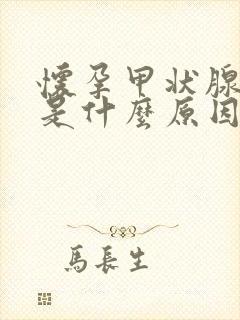 懷孕甲状腺
是什麼原因
馬長生